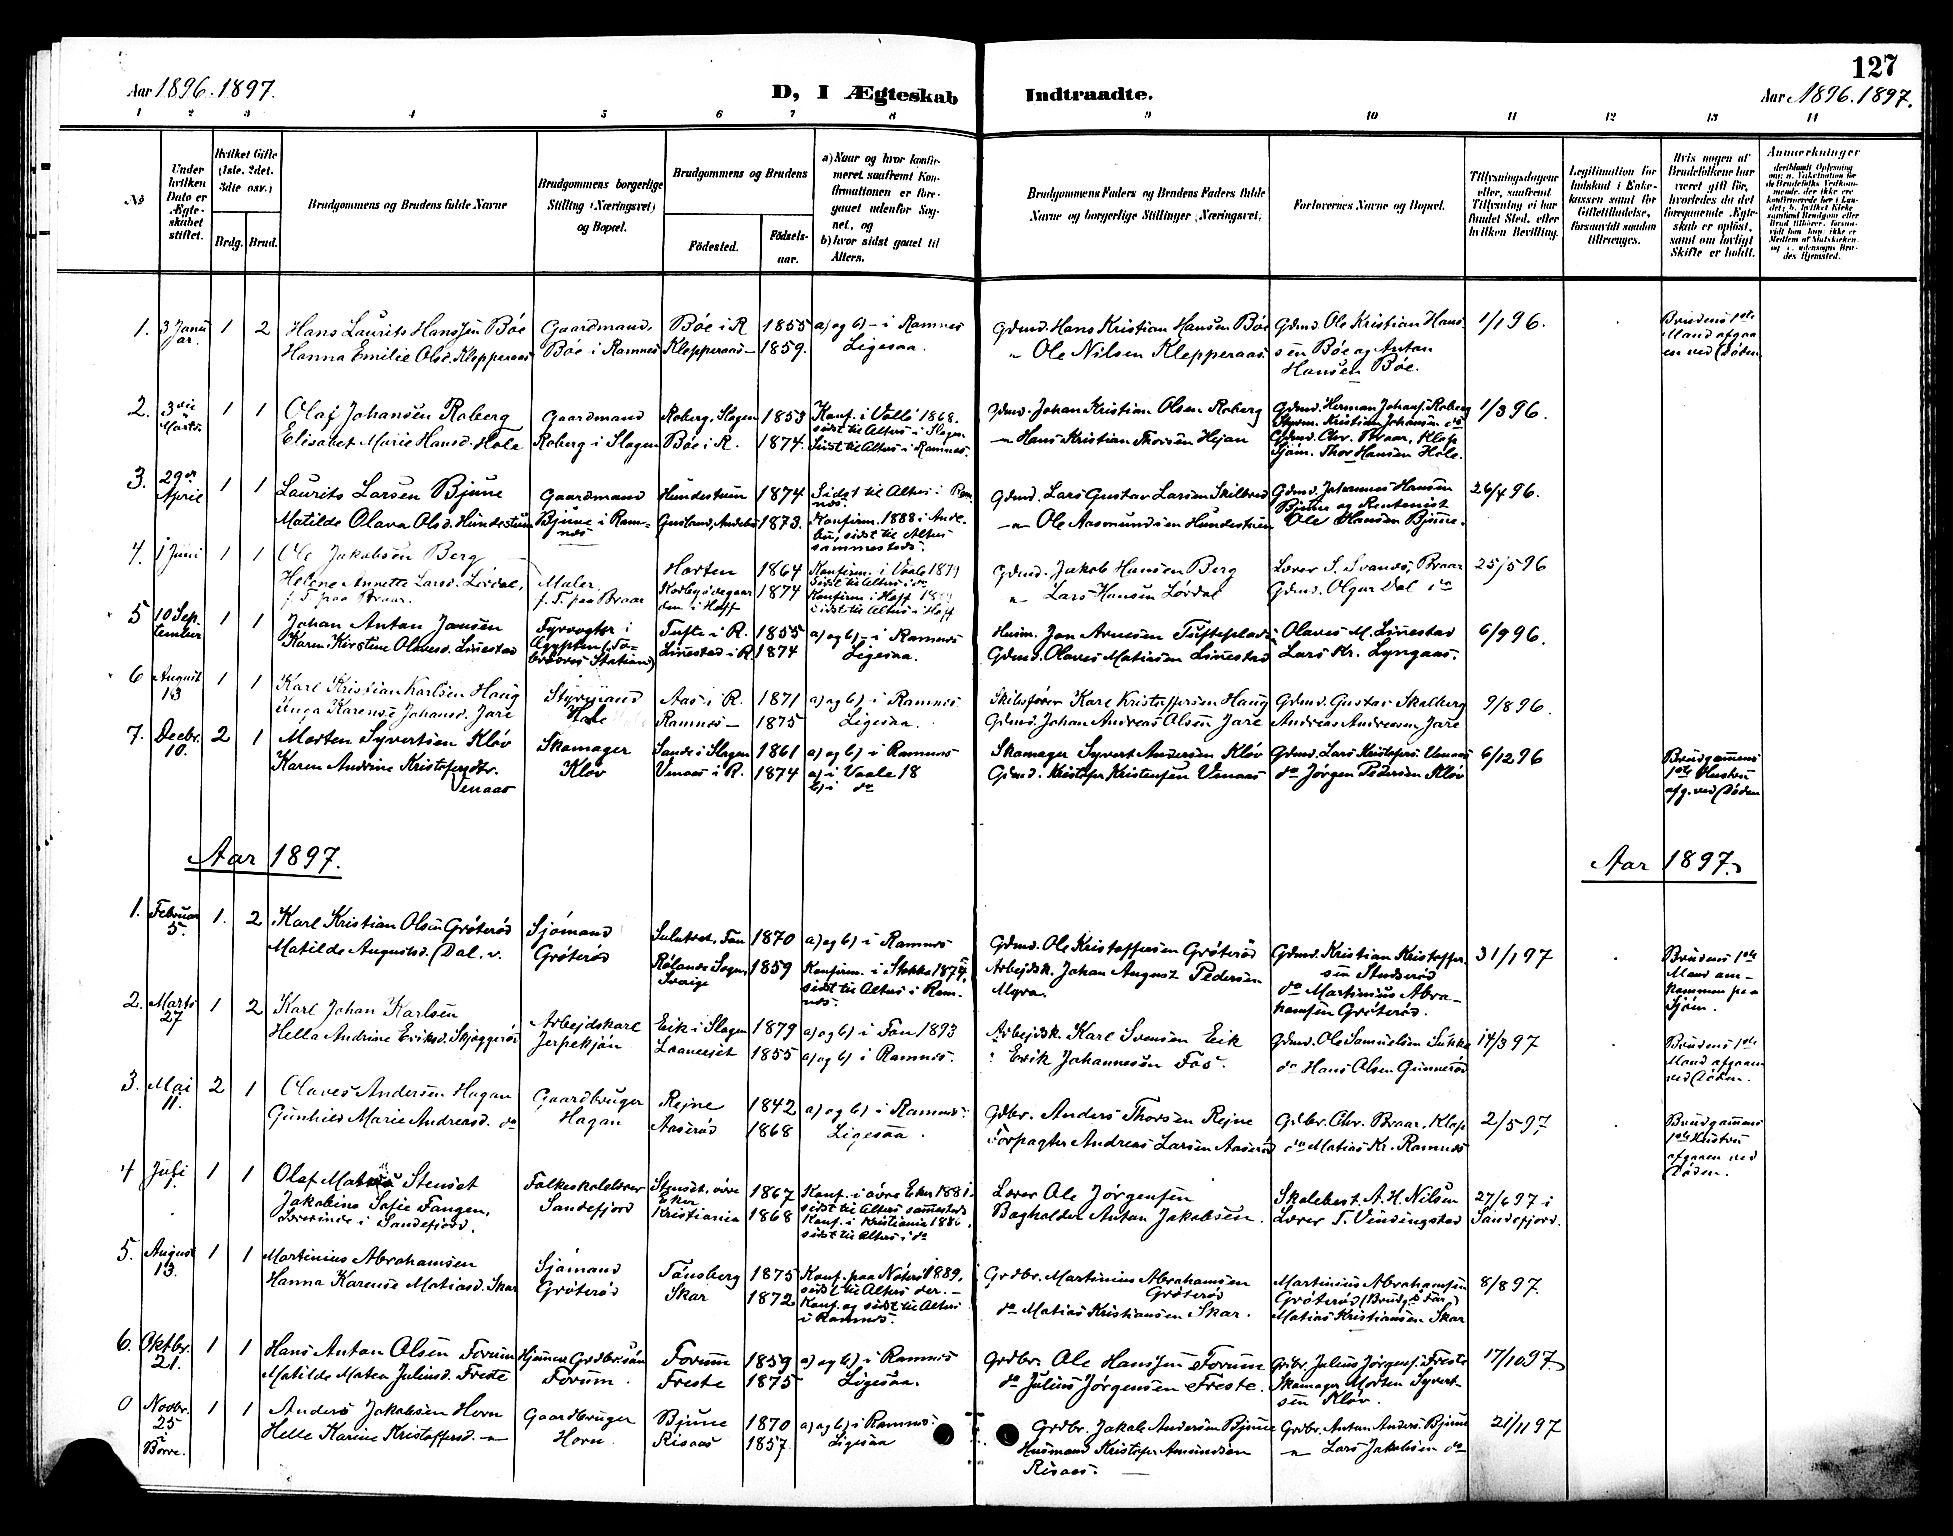 127
Aar 1896. 1897.
D, I Ægteskab Indtraadte.
Aar 1896. 1897.
1 2 3 4 5 6 7 8 9 10 11 12 13 14
No
Under hvilken Dato er Ægteskabet stiftet.
Hvilket Gifte (1ste. 2det. 3die osv.)
Brdg. Brud.
Brudgommens og Brudens fulde Navne
Brudgommens borgerlige Stilling (Næringsvei) og Bopæl.
Brudgommens og Brudens
Fødested.
Fødselsaar.
a) Naar og hvor konfirmeret samt Konfirmationen er foregaaet udenfor Sognet, og
b) hvor sidst gaaet til Alters.
Brudgommens Faders og Brudens Faders fulde Navne og borgerlige Stillinger (Næringsvei).
Forlovernes Navne og Bopæl.
Tillysningsdagene eller, saafremt Tillysning ei har fundet Sted, efter hvilken Bevilling.
Legitimation for Indskud i Enkekassen samt for Giftetilladelse, forsaavidt saadan tiltrænges.
Hvis nogen af Brudefolkene har været gift før, hvorledes da det foregaaende Ægteskab er opløst, samt om lovligt Skifte er holdt.
Anmerkninger
1. 3 Januar. 1 2 Hans Laurits Hanssen Bøe Gaardmand, Bøe i R 1855 a) og b) - i Ramnes Gdmd. Hans Kristian Hansen Bøe Gdmd. Ole Kristian Han- 1/1 96. Brudens 1ste
Hanna Emilie Olsd. Klopperaas Bøe i Ramnes Klopperaas - 1859. Ligesaa. " Ole Nilsen Klepperaas. sen Bøe og Anton Mand afgaa-
Hansen Bøe. en ved Døden
2. 3die Marts. 1 1 Olaf Johansen Roberg Gaardmand Roberg, Slagen 1853 Konf. i Vallø 1868. Gdmd. Johan Kristian Olsen Roberg Gdmd. Herman Johans. Roberg 1/3 96.
sidst til Alters i Slagen. Styrm. Kristian Johansen do
Elisabet Marie Hansd. Hole Roberg i Slagen Bøe i R. 1874. Sidst til Alters i Ramnes. - Hans Kristian Thorsen Gdmd. Chr. Braar, Klop
Thor Hansen Hole.
3. 29de April 1 1 Laurits Larsen Bjune Gaardmand Hundestuen 1874 Sidst til Alters i Ramnes. Gdmd. Lars Gustav Larsen Gdmd. Johannes Hansen 26/4 96.
Bjune og Rentenist
Matilde Olava Olsd. Hundestuen Bjune i Ramnes Andebu 1873. Konfirm. 1888 i Andebu, sidst til Alters sammesteds. - Ole Aasmundsen Hundestuen Ole Hansen Bjune.
4. 1 Juni 1 1 Ole Jakobsen Berg Maler, Horten 1864 Konfirm. i Vaale Gdmd. Jakob Hansen Berg Lærer S. Svanes, Braar 25/5 96
Sidst til Alters i do
Helene Annette Larsd. Lørdal, f. T. paa Braar. f. T. paa Braar i Hoff 1874 Konfirm. i Hoff " Lars Hansen Lørdal Gdmd. Olgar Dal i do
sidst til Alters i Hoff
5 10 September 1 1 Johan Anton Jansen Fyrvogter i Tufte i R. 1855 a) og b) - i Ramnes Jon Arnesen Olaves M. Linnestad 6/9 96.
Karen Kirstine Olavesd. Linnestad Ægypten Linnestad i R. 1874 Ligesaa. Gdmd. Olaves Matiasen Linnestad Lars Kr. Lyngaas.
6 August 13 1 1 Karl Kristian Karlsen Haug Styrmand Aas i R. 1871 a) og b) i Ramnes Karl Kristoffersen Haug Gdmd. Gustav Skalberg 9/8 96.
Karense Johansd. Jare Ramnes - 1875 Ligesaa. Gdmd. Johan Andreas Olsen Jare Andreas Andreasen Jare
7. Decbr. 10. 2 1 Morten Syvertsen Kløv Skomager Sande i Slagen 1861 a) og b) i Ramnes Skomager Syvert Andersen Kløv Gdmd. Lars Kristofers. Venaas 6/12 96 Brudgommens
Karen Andrine Kristofersdtr. Venaas Kløv Venaas i R. 1874 a) i Vaale 18 Gdmd. Kristofer Kristensen Venaas do Jørgen Pedersen Kløv 1ste Hustru
b) i do afg. ved Døden
Aar 1897. Aar 1897.
1. Februar 5. 1. 2 Karl Kristian Olsen Grøterød Sjømand 1870 a) og b) i Ramnes Gdmd. Ole Kristoffersen Grøterød Gdmd. Kristian Kristoffer- 31/1 97 Brudens 1ste
sen Mand om-
Matilde Augustsd. Dal. v. Grøterød Rølanda Sogn, Sverige 1859 Konfirm. i Stokke 1874, sidst til Alters i Ramnes. Arbejdsk. Johan August Pedersen do Martinius Abra- kommen paa
Myra. hamsen Grøterød. Sjøen.
2. Marts 27 1 2 Karl Johan Karlsen Arbejdskarl Eik i Slagen 1879 a) og b) i Fon 1893 Arbejdsk. Karl Svensen Eik Gdmd. Ole Samuelsen Sukke 14/3 97 Brudens 1ste
Hella Andrine Eriksd. Skjøggerø Jerpekjøn 1855 a) og b) i Ramnes. " Erik Johannesen Fos. do Hans Olsen Gunnerød Mand afgaaen
ved Døden.
3. Mai 11. 2 1 Olaves Andersen Hagan Gaardbruger Rejne 1842 a) og b) i Ramnes. Gdbr. Anders Thorsen Rejne Grdbr. Chr. Braar, Klop 2/5 97 Brudgommens
Gunhild Marie Andreasd. do Hagan Aaserød 1868 Ligesaa. Forpagter Andreas Larsen Aaserød do Matias Kr. Ramnes 1ste Hustru
afgaaen ved
Døden.
4 Juli 1 1 Olaf Stenset Folkeskolelærer Stenset, øvre Eker 1867 Konf. i øvre Eker 1881. Lærer Ole Jørgensen Skolebest. A. H. Nilsen 27/6 97 i
sidst til Alters sammesteds
Jakobine Sofie Fangen, Sandefjord Kristiania 1868 Konf. i Kristiania 1886, Bogholder Anton Jakobsen. Lærer T. Vindingstad Sandefjord.
Lærerinde i Sandefjord. sidst til Alters i do
5. August 13. 1 1 Martinius Abrahamsen Sjømand Tønsberg 1875 Konf. paa Nøterø 1889. Grdbr. Martinius Abrahamsen Martinius Abrahamsen 8/8 97.
sidst til Alters der. - Grøterød Grøterød (Brudg.s Far)
Hanna Karense Matiasd. Skar Grøterød Skar 1872 Konf. og sidst til Alters i Ramnes. do Matias Kristiansen Skar. Matias Kristiansen Skar
6. Oktbr. 21. 1 1 Hans Anton Olsen Forum Hjemmev. Grdbr. søn Forum 1859 a) og b) i Ramnes Grdbr. Ole Hanssen Forum Grdbr. Julius Jørgens. Freste 17/10 97
Matilde Matea Juliusd. Freste Forum. Freste 1875 Ligesaa. do Julius Jørgensen Freste. Skomager Morten Syvert-
sen Kløv.
0 Novbr. 25 i Borre. 1 1 Anders Jakobsen Horn Gaardbruger Bjune 1870 a) og b) i Ramnes. Grdbr. Jakob Andersen Bjune Grdbr. Anton Anders. Bjune 21/11 97
Helle Karine Kristoffersd. - Horn. Risaas 1857. Ligesaa Husmand Kristofer Amundsen - Lars Jakobsen do
Risaas. -